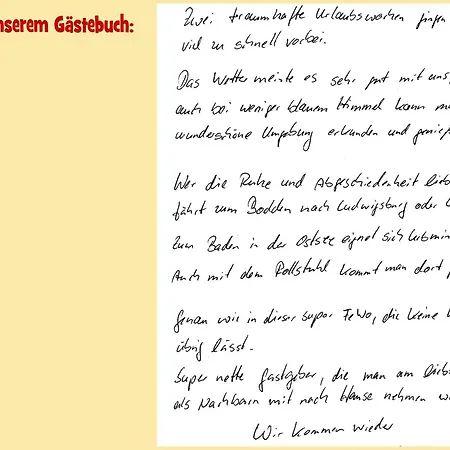 nserem Gästebuch:
Zwei traumhafte Urlaubswochen gingen
viel zu schnell vorbei.
Das Wetter meinte es sehr gut mit uns,
auch bei weniger blauem Himmel kann
wunderschöne Umgebung erkunden und
Wer die Ruhe und Abgeschiedenheit
fährt zum Bodden nach Ludwigsburg oder
Zum Baden in der Ostsee eignet sich
Auch mit dem Rollstuhl kommt man dort
Genau wie in dieser super FeWo, die keine
übrig lässt.
Super nette Gastgeber, die man am
als Nachbarn mit nach Hause nehmen
Wir kommen wieder